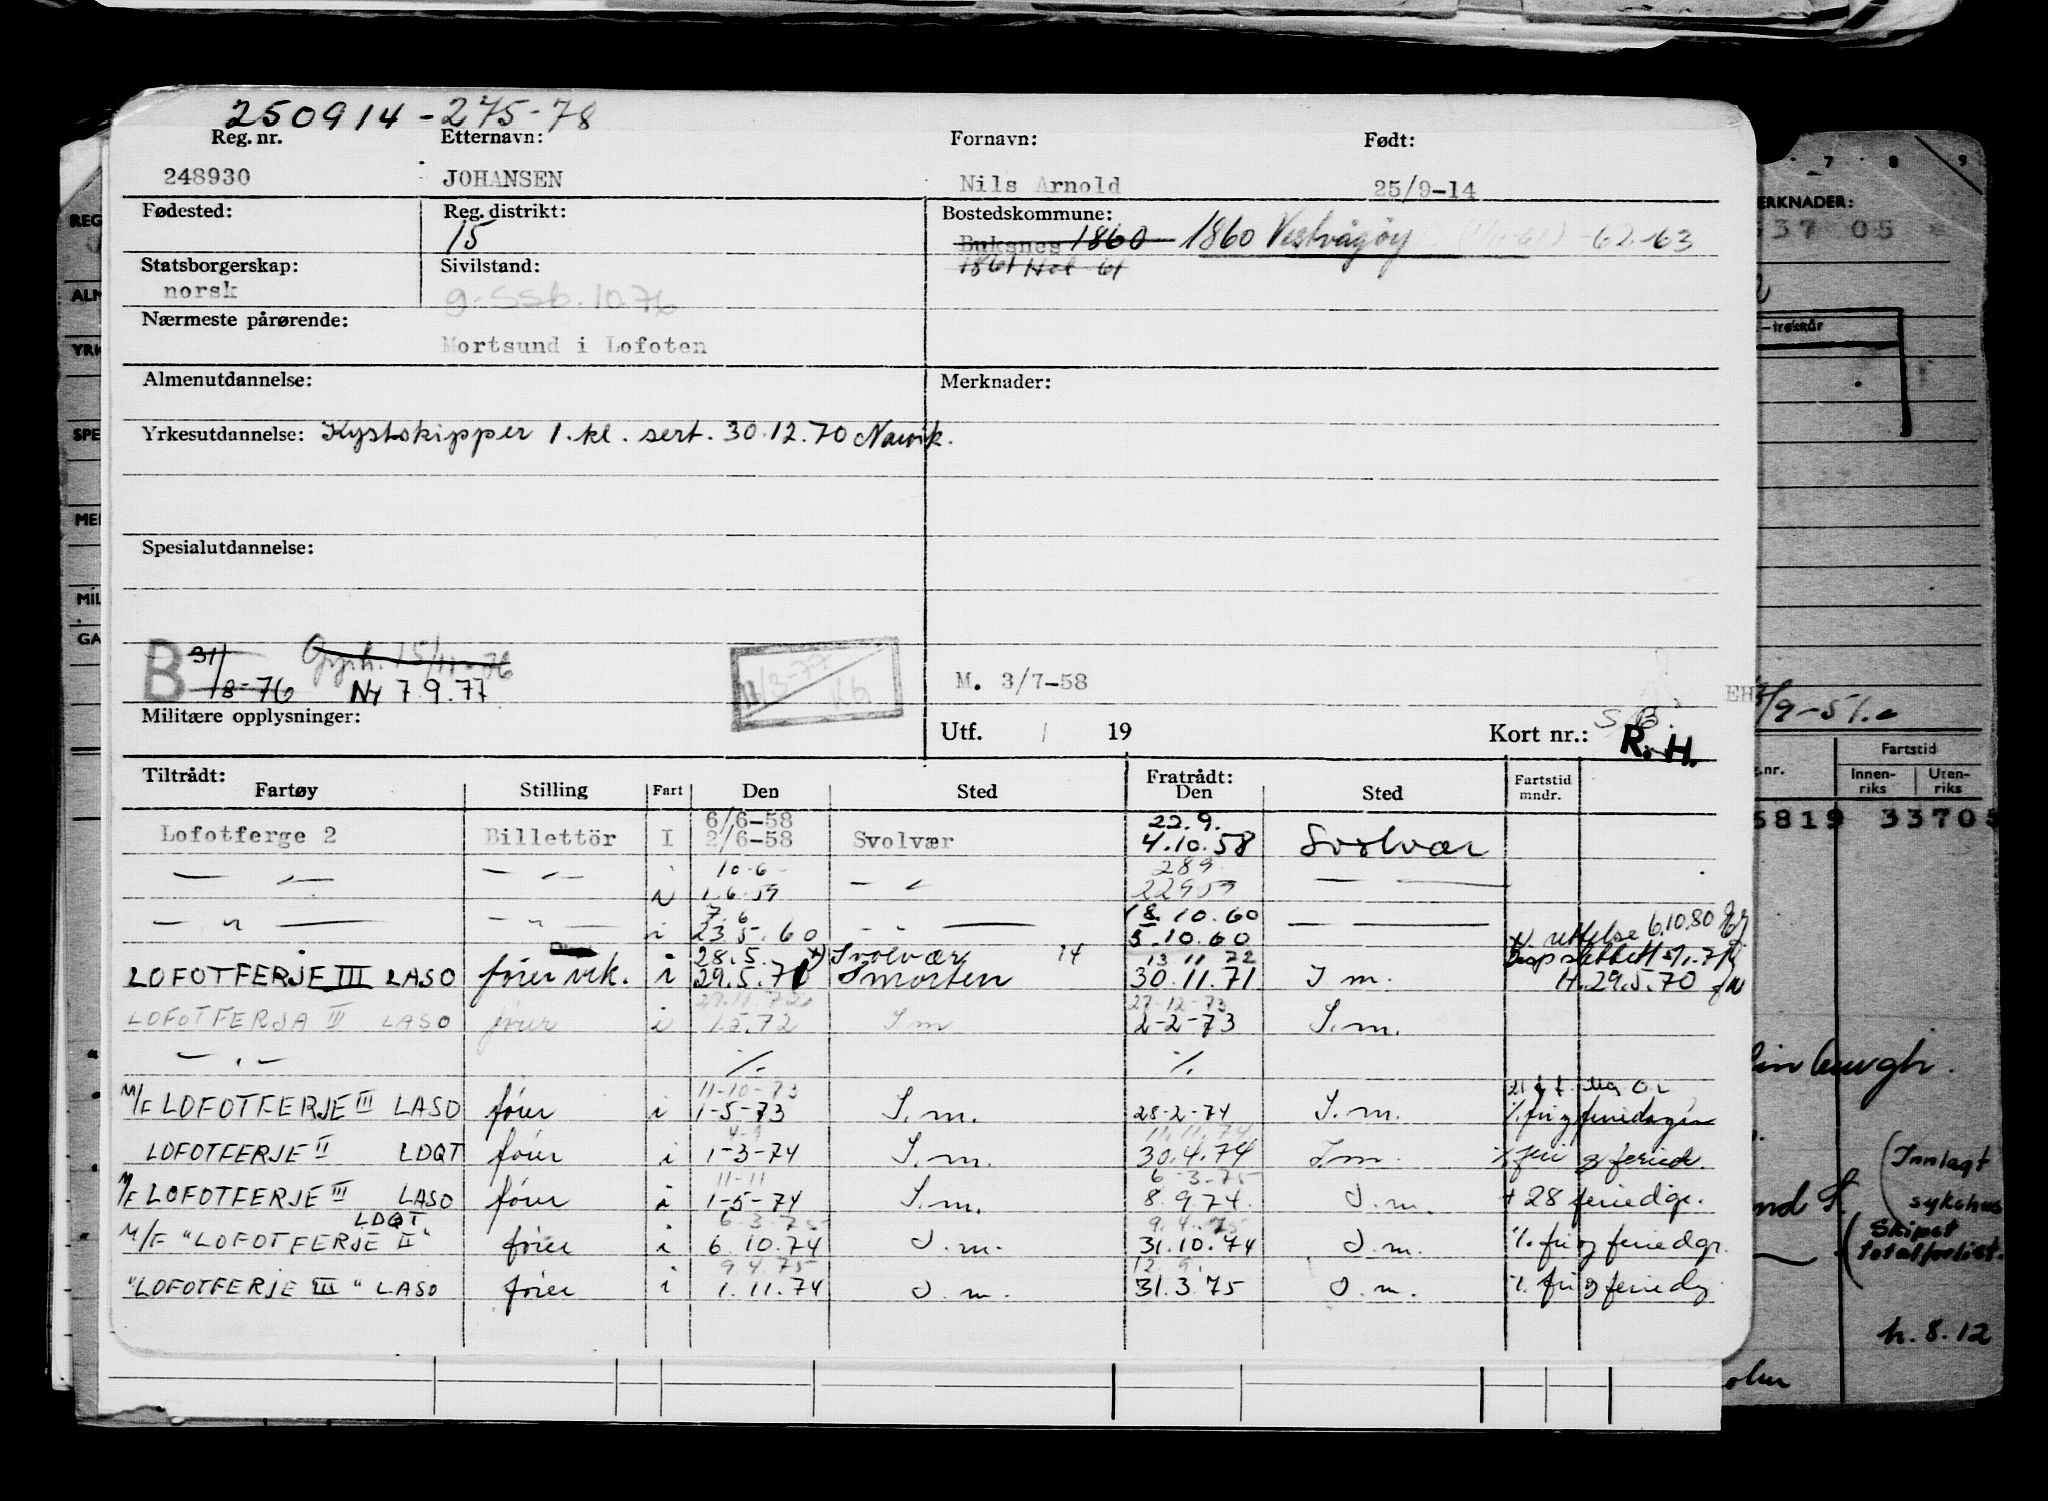 250914-275-78
Reg. nr. Etternavn: Fornavn: Født:
248930 JOHANSEN Nils Arnold 25/9-14
Fødested: Reg. distrikt: Bostedskommune:
15 Buksnes 1860 1860 Vestvågøy -62-63
1861 Hol 61
Statsborgerskap: Sivilstand:
norsk g-ssb. 10.76
Nærmeste pårørende:
Mortsund i Lofoten
Almenutdannelse: Merknader:
Yrkesutdannelse: Kystskipper 1. kl. sert. 30.12.70 Narvik.
Spesialutdannelse:
B 31/8-76 15/11-76
Ny 7.9.77
M. 3/7-58
Militære opplysninger: Utf. / 19 Kort nr.:
R.H.
Tiltrådt: Fratrådt: Fartstid
Fartøy Stilling Fart Den Sted Den Sted mndr.
6/6-58 22.9.
Lofotferge 2 Billettör I 2/6-58 Svolvær 4.10.58 Svolvær
10-6 289
1.6.59 22959
7.6 18.10.60
i 23.5.60 5.10.60
x). rettelse 6.10.80
28.5. x) Svolvær 13 11 72
LOFOTFERJE III LASO fører vik. i 29.5.71 Smorten 30.11.71 I m. H. 29.5.70
27-12-73
LOFOTFERJA III LASO fører i 1.5.72 I m 2-2-73 I.m.
%. %.
11-10-73
M/F LOFOTFERJE III LASO fører i 1-5-73 I.m. 28-2-74 I.m. %. fri og feriedager
4-9 11.11.74
LOFOTFERJE II LDQT fører i 1-3-74 I.m. 30.4.74 I.m. % fri og feried.
11-11 6-3-75
M/F LOFOTFERJE III LASO fører i 1-5-74 I.m. 8.9.74. I.m. + 28 feriedgr.
LDQT 6.3.75 9.4.75
M/F "LOFOTFERJE II" fører i 6.10.74 I.m. 31.10.74 I.m. %. fri og feriedgr.
9.4.75 12.9.
"LOFOTFERJE III" LASO fører i 1.11.74 I.m. 31.3.75 I.m. %. fri og feriedg
7 8 9
ERKNADER:
537 05
/9-51.
Fartstid
g.nr. Innen-riks Uten-riks
5819 33705
inburgh.
(Innlagt
sykehus
(Skipet
totalforlist.
h. 8.12
REG
ALM
YRK
SPE
MER
MIL
GA